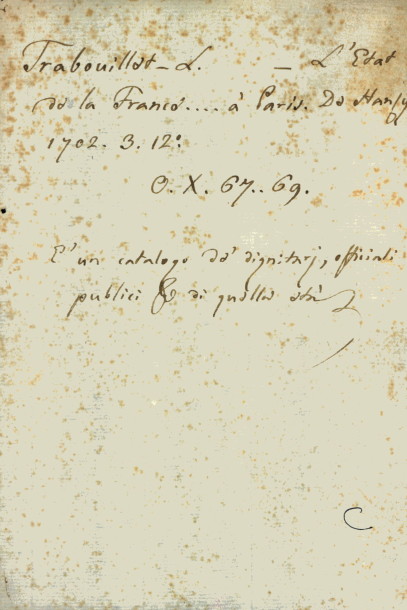 Trabouillet - L. — L'Etat
de la France.... à Paris. De Hansy
1702. 3. 12°.
O. X. 67..69.
E' un catalogo de' dignitarj, officiali
publici & di quella età
C